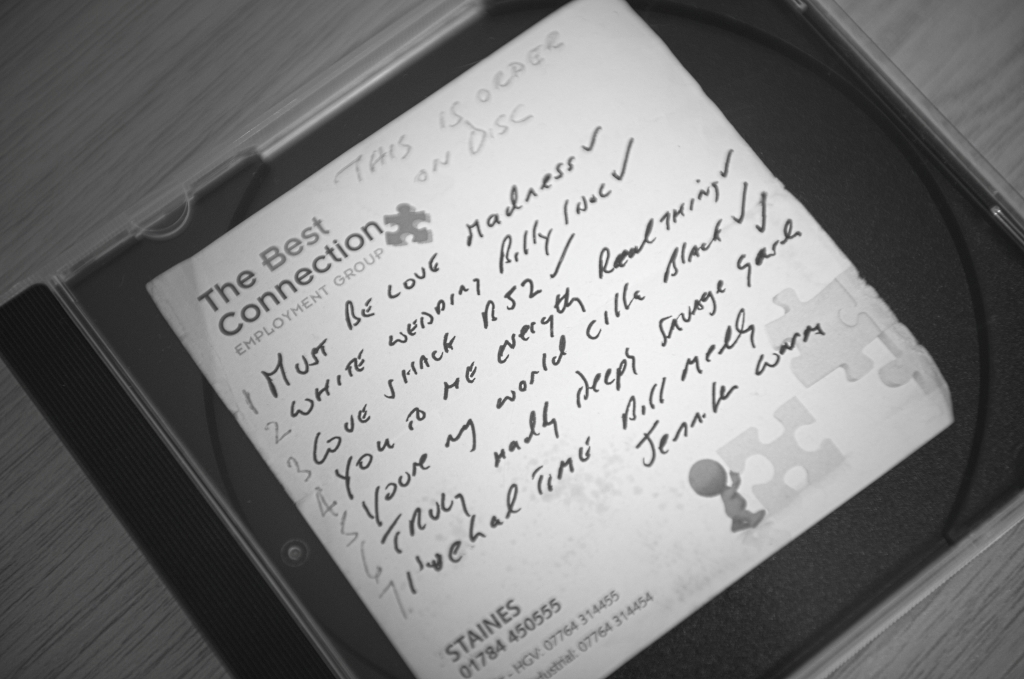 THIS IS ORDER
ON DISC
The Best
Connection
EMPLOYMENT GROUP
1 MUST BE LOVE Madness ✓
2 WHITE WEDDING Billy Idol ✓
3 LOVE SHACK B52 ✓
4 YOU TO ME everyth Real THING ✓
5 Youre my world cilla Black ✓
6 TRULY madly Deeply Savage Garde ✓
7. I've had TIME Bill Medly
Jennifer Warm
STAINES
01784 450555
- HGV: 07764 314455
dustrial: 07764 314454